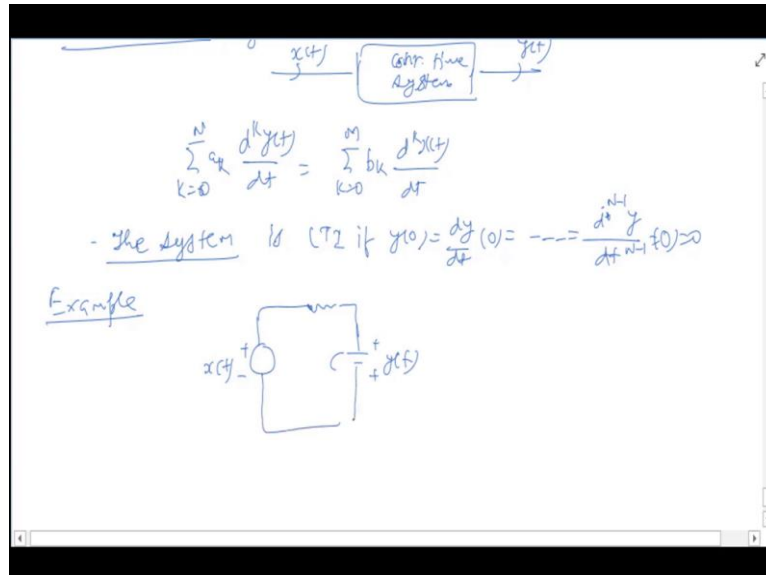 x(t) y(t)
Cont. time
System
N M
∑ a_k d^k y(t) = ∑ b_k d^k x(t)
k=0 dt k=0 dt
- The system is LTI if y(0) = dy/dt (0) = ---- = d^{N-1} y / dt^{N-1} (0) = 0
Example
x(t) + - C + + y(t)